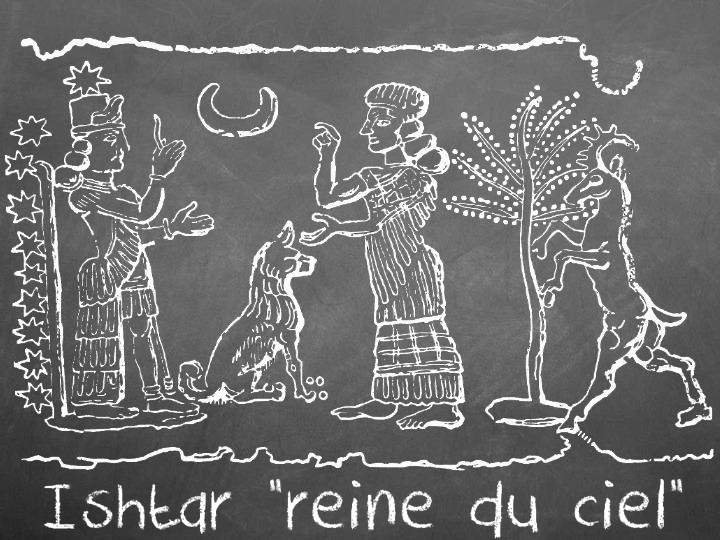 Ishtar "reine du ciel"